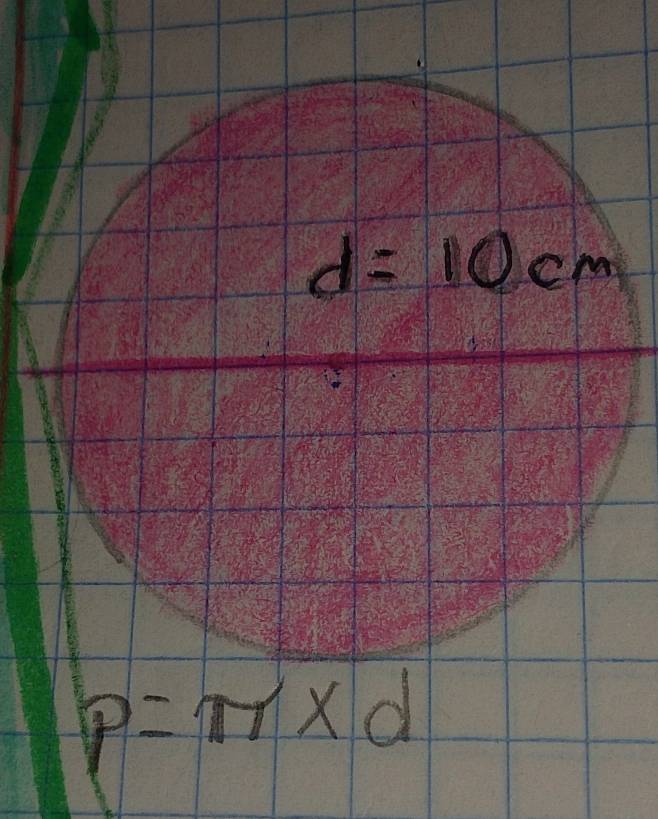 d= 10cm
p= π x d